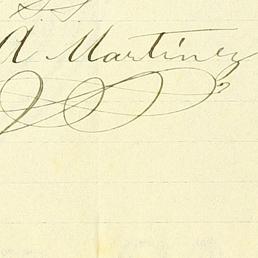 A Martínez